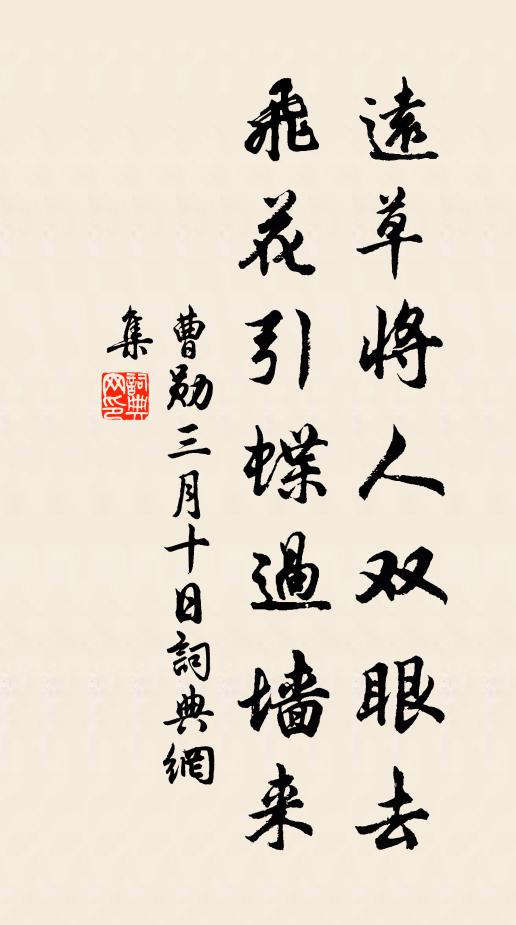 遠草将人双眼去
飛花引蝶過墙来
曹勋三月十日詞典網
集
詞典网印